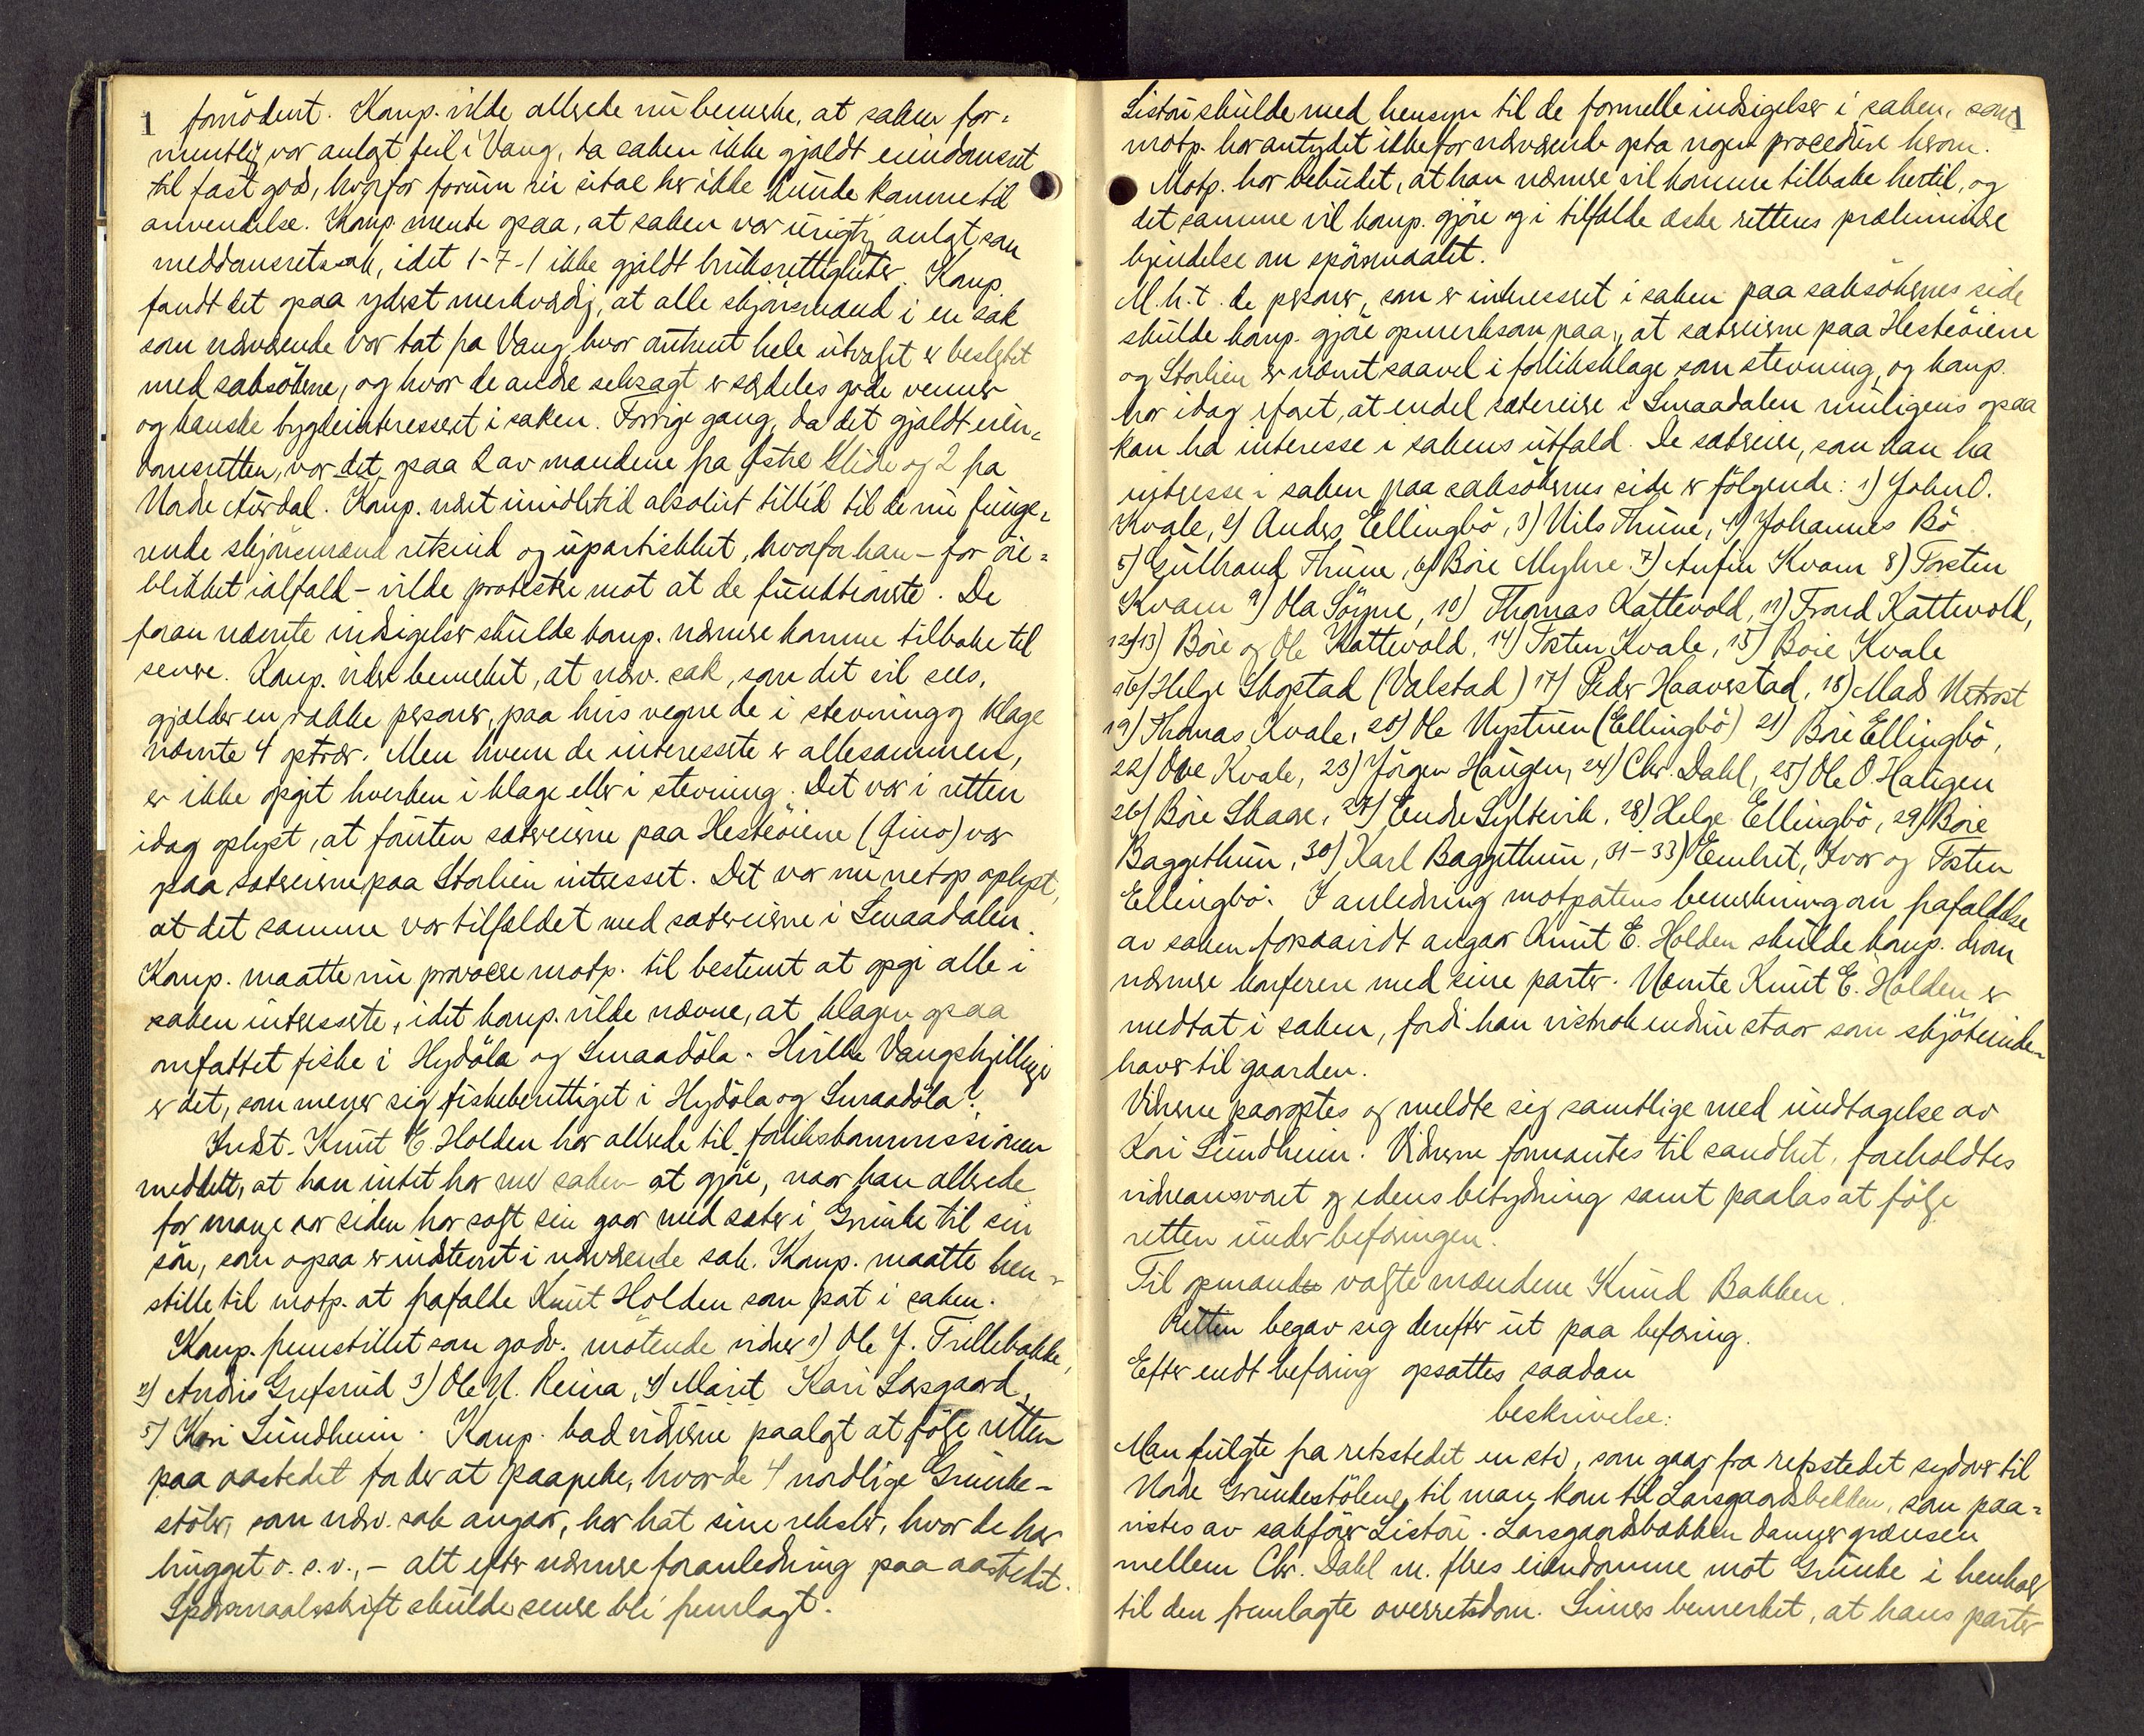 1
fornödent. Komp. vilde allerede nu bemerke, at saken for-
mentlig var anlagt feil i Vang, da saken ikke gjaldt eiendomsret
til fast gods, hvorfor forum rei sitae her ikke kunde komme til
anvendelse. Komp. mente ogsaa, at saken var urigtig anlagt som
meddomsretssak, idet 1-7-1 ikke gjeldt bruksrettigheter. Komp.
fandt det ogsaa yderst merkværdig, at alle skjönsmænd i en sak
som nærværende var tat fra Vang, hvor omtrent hele utvalget er beslegtet
med saksökerne, og hvor de andre selvsagt er særdeles gode venner
og kanske bygdeinteressert i saken. Forrige gang, da det gjaldt eien-
domsretten, var det ogsaa 2 av mændene fra Østre Slidre og 2 fra
Nordre Aurdal. Komp. næret imidlertid absolut tillid til de nu funge-
rende skjönsmænds retsind og upartiskhet, hvorfor han - for öie-
blikket ialfald - vilde protestere mot at de funktionerte. De
foran nævnte indsigelser skulde komp. nærmere komme tilbake til
senere. Komp. vilde bemerket, at nærv. sak, som det vil sees,
gjælder en række personer, paa hvis vegne de i stevning og klage
nævnte 4 optrær. Men hvem de interesserte er allesammen,
er ikke opgit hverken i klage eller i stevning. Det var i retten
idag oplyst, at foruten sætereierne paa Hesteöiene (Fino) var
paa sætereierne paa Storlien interessert. Det var nu netop oplyst,
at det samme var tilfældet med sætereierne i Smaadalen.
Komp. maatte nu provocere motp. til bestemt at opgi alle i
saken interesserte, idet komp. vilde nævne, at klagen ogsaa
omfattet fiske i Hydöla og Smaadöla. Hvilke Vangskjillinger
er det, som mener sig fiskeberettiget i Hydöla og Smaadöla?
Indst. Knut E. Holden har allerede til forlikskommissionen
meddelt, at han intet har med saken at gjöre, naar han allerede
for mange aar siden har solgt sin gaar med sæter i Grunke til sin
sön, som ogsaa er indstevnt i nærværende sak. Komp. maatte hen-
stille til motp. at frafalde Knut Holden som part i saken.
Komp. fremstillet som godv. mötende vidner 1) Ole J. Trillebakke,
2) Andris Grefsrud 3) Ole N. Reina, 4) Marit Kari Larsgaard,
5) Kari Sundheim. Komp. bad vidnerne paalagt at fölge retten
paa aastedet for der at paapeke, hvor de 4 nordlige Grunke-
stöler, som nærv. sak angaar, har hat sine rekster, hvor de har
hugget o.s.v., - alt efter nærmere foranledning paa aastedet.
Spörsmaalsskrift skulde senere bli fremlagt.
1
Liston skulde med hensyn til de formelle indsigelser i saken, som
motp. har antydet ikke for nærværende opta nogen procedure herom.
Motp. har bebudet, at han nærmere vil komme tilbake hertil, og
det samme vil komp. gjöre og i tilfælde æske rettens præliminære
kjendelse om spörsmaalet.
M.h.t. de personer, som er interessert i saken paa saksökernes side
skulde komp. gjöre opmerksom paa, at sætereierne paa Hesteöiene
og Storlien er nævnt saavel i forliksklage som stevning, og komp.
har idag erfaret, at endel sætereiere i Smaadalen muligens ogsaa
kan ha interesse i sakens utfald. De sætreiere, som kan ha
interesse i saken paa saksökernes side er fölgende: 1) John O.
Kvale, 2) Anders Ellingbö, 3) Nils Thune, 4) Johannes Bö
5) Gulbrand Thune, 6) Böie Myhre. 7) Anfin Kvam 8) Torsten
Kvam 9) Ola Söyne, 10) Thomas Kattevold, 11) Trond Kattevold,
12/13) Böie og Ole Kattevold, 14) Tosten Kvale, 15) Böie Kvale
16) Helge Skogstad (Valstad) 17) Peder Haaverstad, 18) Mads Netrost
19) Thomas Kvale, 20) Ole Nystuen (Ellingbö) 21) Böie Ellingbö,
22) Ove Kvale, 23) Jörgen Haugen, 24) Chr. Dahl, 25) Ole O. Haugen
26) Böie Skaar, 27) Endre Syltevik, 28) Helge Ellingbö, 29) Böie
Baggethun, 30) Karl Baggethun, 31-33) Embrit, Ivar og Tosten
Ellingbö. I anledning motpartens bemerkning om frafaldelse
av saken forsaavidt angaar Knut E. Holden skulde komp. derom
nærmere konferere med sine parter. Nævnte Knut E. Holden er
medtat i saken, fordi han vistnok endnu staar som skjöteinde-
haver til gaarden.
Vidnerne paaroptes og meldte sig samtlige med undtagelse av
Kari Sundheim. Vidnerne formantes til sandhet, foreholdtes
vidneansvaret og edens betydning samt paalas at fölge
retten under befaringen.
Til opmand valgte mændene Knud Bakken.
Retten begav sig derefter ut paa befaring.
Efter endt befaring opsattes saadan
beskrivelse:
Man fulgte fra retsstedet en sti, som gaar fra retsstedet sydover til
Nordre Grunkestölene, til man kom til Larsgaardsbekken, som paa-
vistes av sakförer Liston. Larsgaardsbekken danner grænsen
mellem Chr. Dahl m. fleres eiendomme mot Grunke i henhold
til den fremlagte overretsdom. Simers bemerket, at hans parter